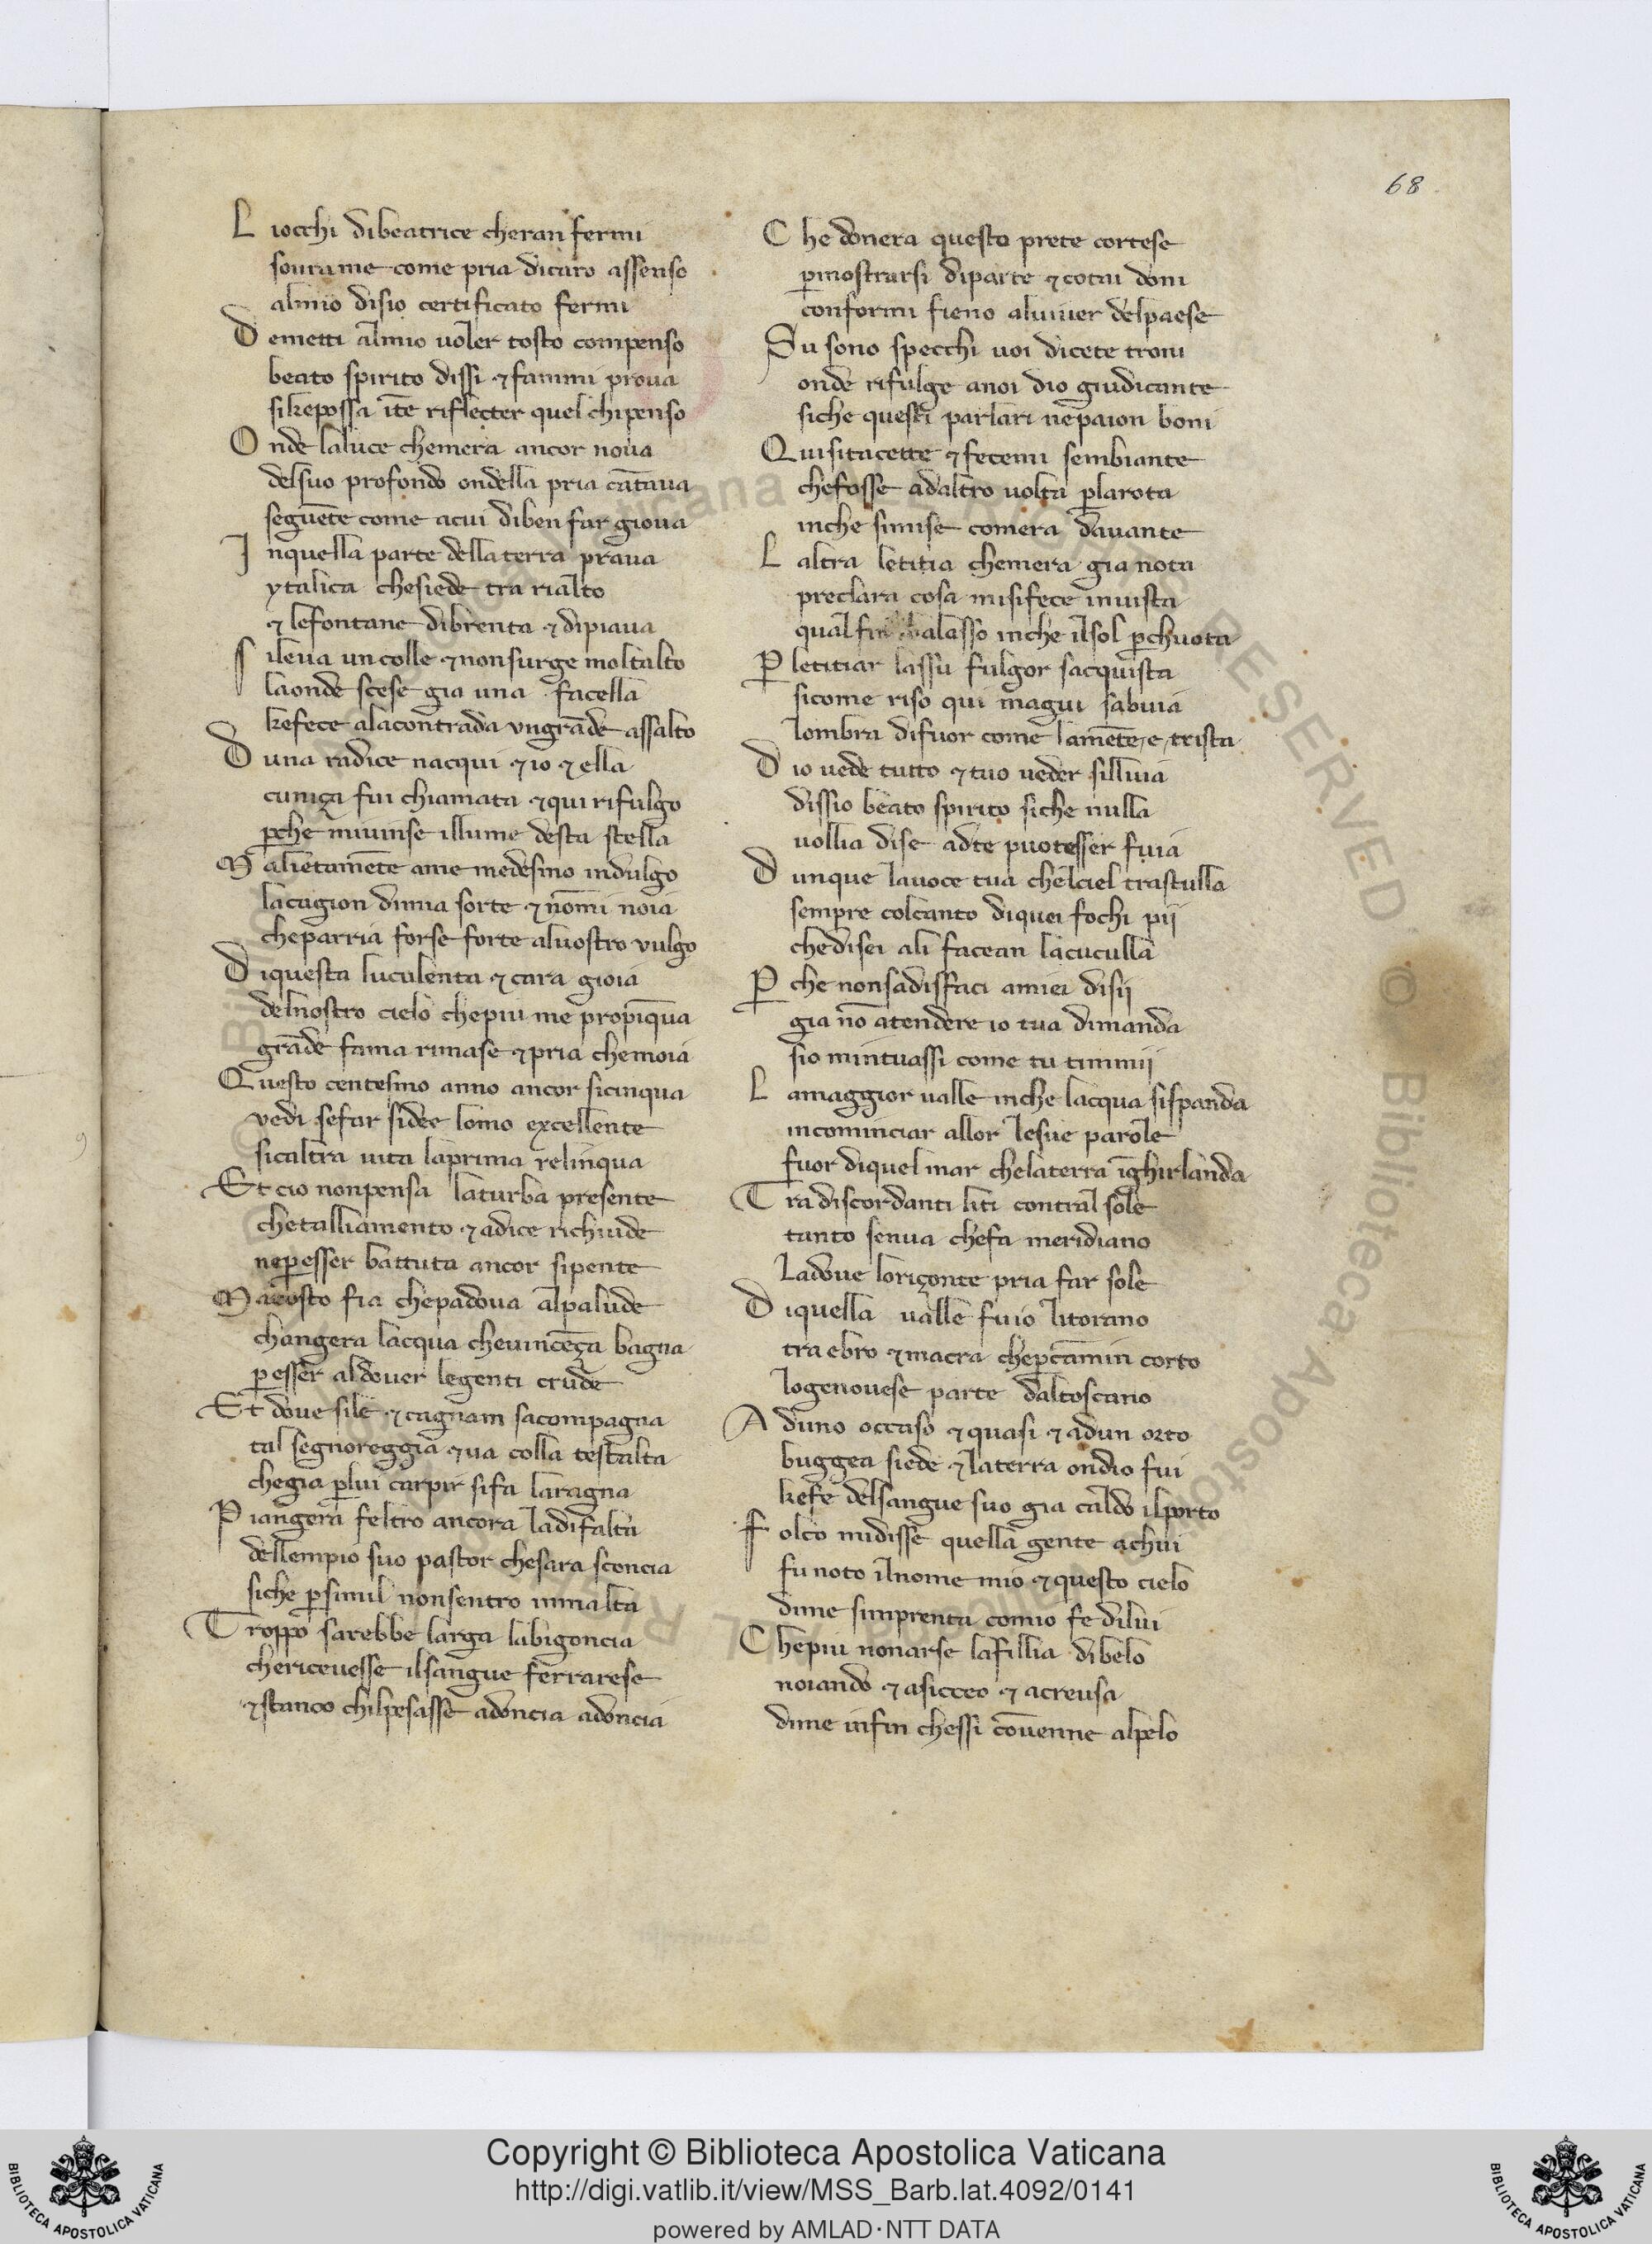 68
L iocchi dibeatrice cheran fermi
soura me come pria dicaro assenso
almio disio certificato fermi
D emetti almio uoler tosto compenso
beato spirito dissi ⁊ fammi proua
sikepossa īte riflecter quel chipenso
O nde laluce chemera ancor noua
delsuo profondo ondella pria cātaua
seguēte come acui diben far gioua
I nquella parte dellaterra praua
ytalica chesiede tra rialto
⁊ lefontane dibrenta ⁊ dipiaua
S ileua uncolle ⁊ nonsurge moltalto
laonde scese gia una facella
kefece alacontrada vngrāde assalto
D una radice nacqui ⁊ io ⁊ ella
cuniça fui chiamata ⁊ qui rifulgo
ꝑche miuinse illume desta stella
M alietamēte ame medesmo indulgo
lacagion dimia sorte ⁊ nōmi noia
cheparria forse forte aluostro vulgo
D iquesta luculenta ⁊ cara gioia
delnostro cielo chepiu me propīqua
grāde fama rimase ⁊ pria chemoia
Q uesto centesmo anno ancor sicinqua
vedi sefar sidee lomo excellente
sicaltra uita laprima relinqua
Et cio nonpensa laturba presente
chetalliamento ⁊ adice richiude
neꝑesser battuta ancor sipente
M atosto fia chepadoua alpalude
changera lacqua cheuincēça bagna
ꝑesser aldouer legenti crude
Et doue sile ⁊ cagnam sacompagna
tal segnoreggia ⁊ ua colla testalta
chegia ꝑlui carpir sifa laragna
P iangera feltro ancora ladifalta
dellempio suo pastor chesara sconcia
siche ꝑsimil nonsentro inmalta
T roppo sarebbe larga labigoncia
chericeuesse ilsangue ferrarese
⁊ stanco chilpesasse adoncia adoncia
C he donera questo prete cortese
ꝑmostrarsi diparte ⁊ cotai doni
conformi fieno aluiuer delpaese
Su sono specchi uoi dicete troni
onde rifulge anoi dio giudicante
siche questi parlari nepaion boni
Q uisitacette ⁊ fecemi sembiante
chefosse adaltro uolta ꝑlarota
inche simise comera dauante
L altra letitia chemera gia nota
preclara cosa misifece inuista
qual fin balasso inche ilsol ꝑchuota
P letitiar lassu fulgor sacquista
sicome riso qui magui sabuia
lombra difuor come lamēte e trista
D io uede tutto ⁊ tuo ueder silluia
dissio beato spirito siche nulla
uollia dise adte puotesser fuia
D unque lauoce tua chelciel trastulla
sempre colcanto diquei fochi pij
chedisei ali facean lacuculla
P che nonsadisfaci amiei disij
gia nō atendere io tua dimanda
sio mintuassi come tu timmij
L amaggior ualle inche lacqua sispanda
incominciar allor lesue parole
fuor diquel mar chelaterra īghirlanda
T radiscordanti liti contral sole
tanto senua chefa meridiano
ladoue loriçonte pria far sole
D iquella ualle fuio litorano
tra ebro ⁊ macra cheꝑ cāmin corto
logenouese parte daltoscano
A duno occaso ⁊ quasi ⁊ adun orto
buggea siede ⁊ laterra ondio fui
kefe delsangue suo gia caldo ilporto
F olco midisse quella gente achui
fu noto ilnome mio ⁊ questo cielo
dime simprenta comio fe dilui
C hepiu nonarse lafillia dibelo
noiando ⁊ asicceo ⁊ acreusa
dime infin chessi cōuenne alpelo
Copyright © Biblioteca Apostolica Vaticana
http://digi.vatlib.it/view/MSS_Barb.lat.4092/0141
powered by AMLAD·NTT DATA
BIBLIOTECA APOSTOLICA VATICANA
BIBLIOTECA APOSTOLICA VATICANA